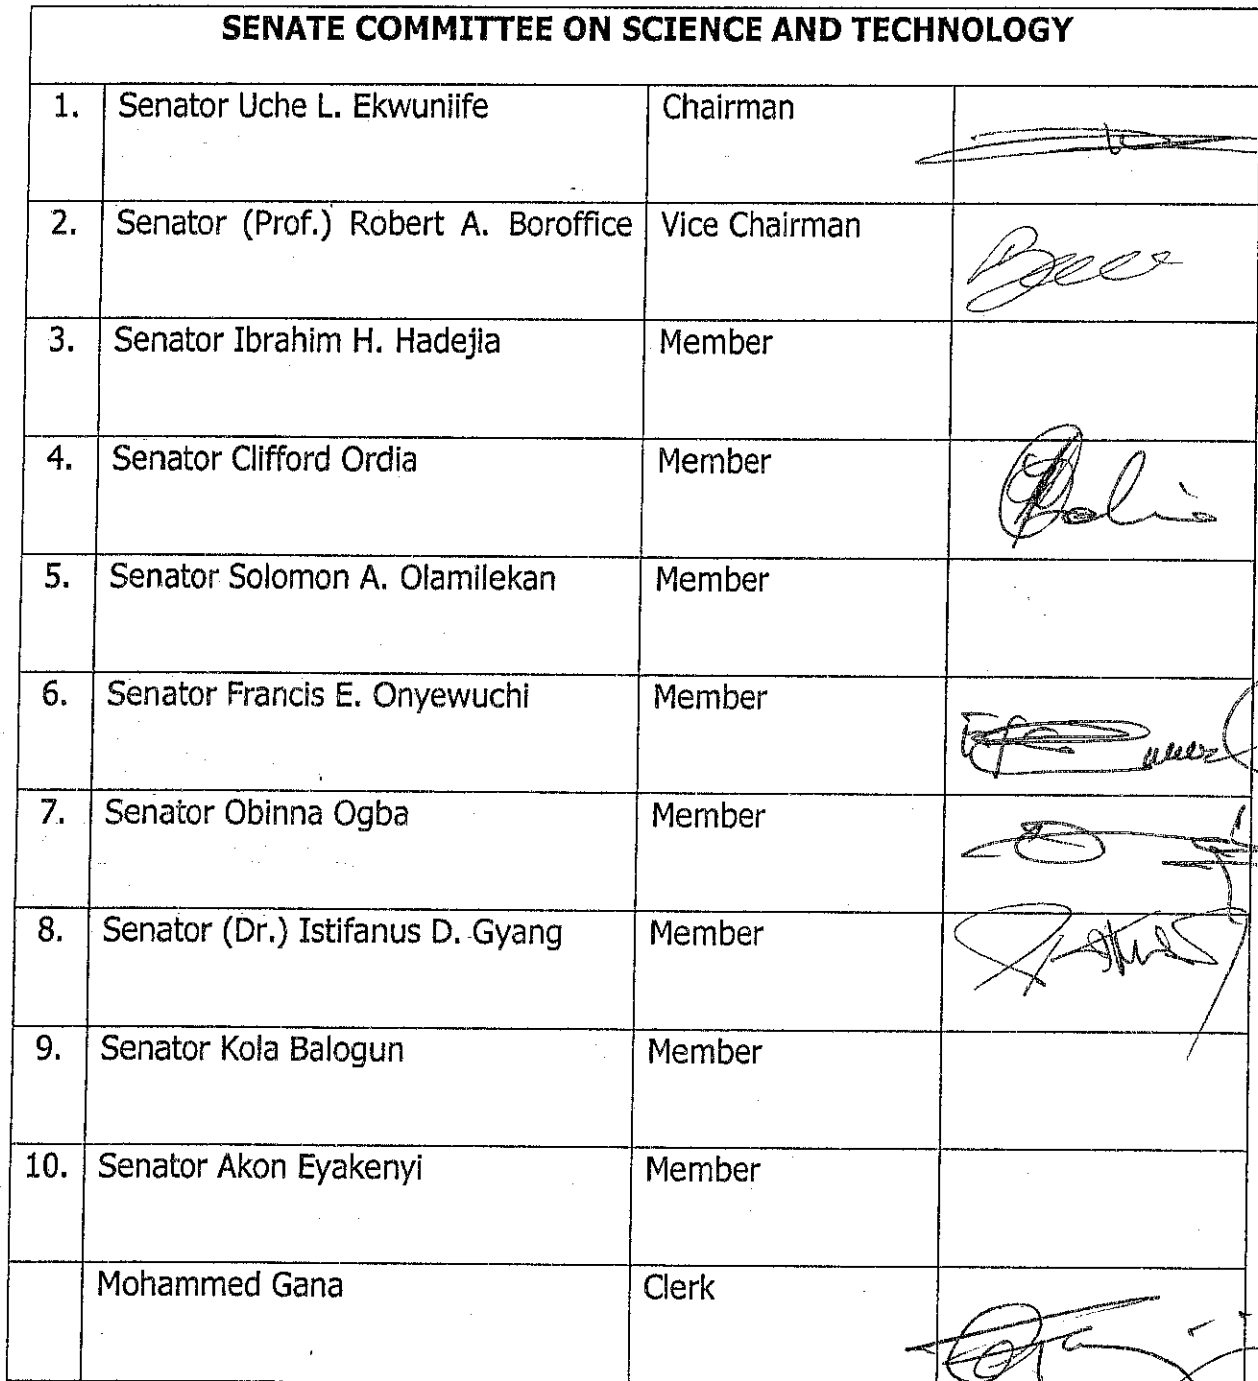 SENATE COMMITTEE ON SCIENCE AND TECHNOLOGY
1. Senator Uche L. Ekwuniife Chairman
2. Senator (Prof.) Robert A. Boroffice Vice Chairman
3. Senator Ibrahim H. Hadejia Member
4. Senator Clifford Ordia Member
5. Senator Solomon A. Olamilekan Member
6. Senator Francis E. Onyewuchi Member
7. Senator Obinna Ogba Member
8. Senator (Dr.) Istifanus D. Gyang Member
9. Senator Kola Balogun Member
10. Senator Akon Eyakenyi Member
Mohammed Gana Clerk